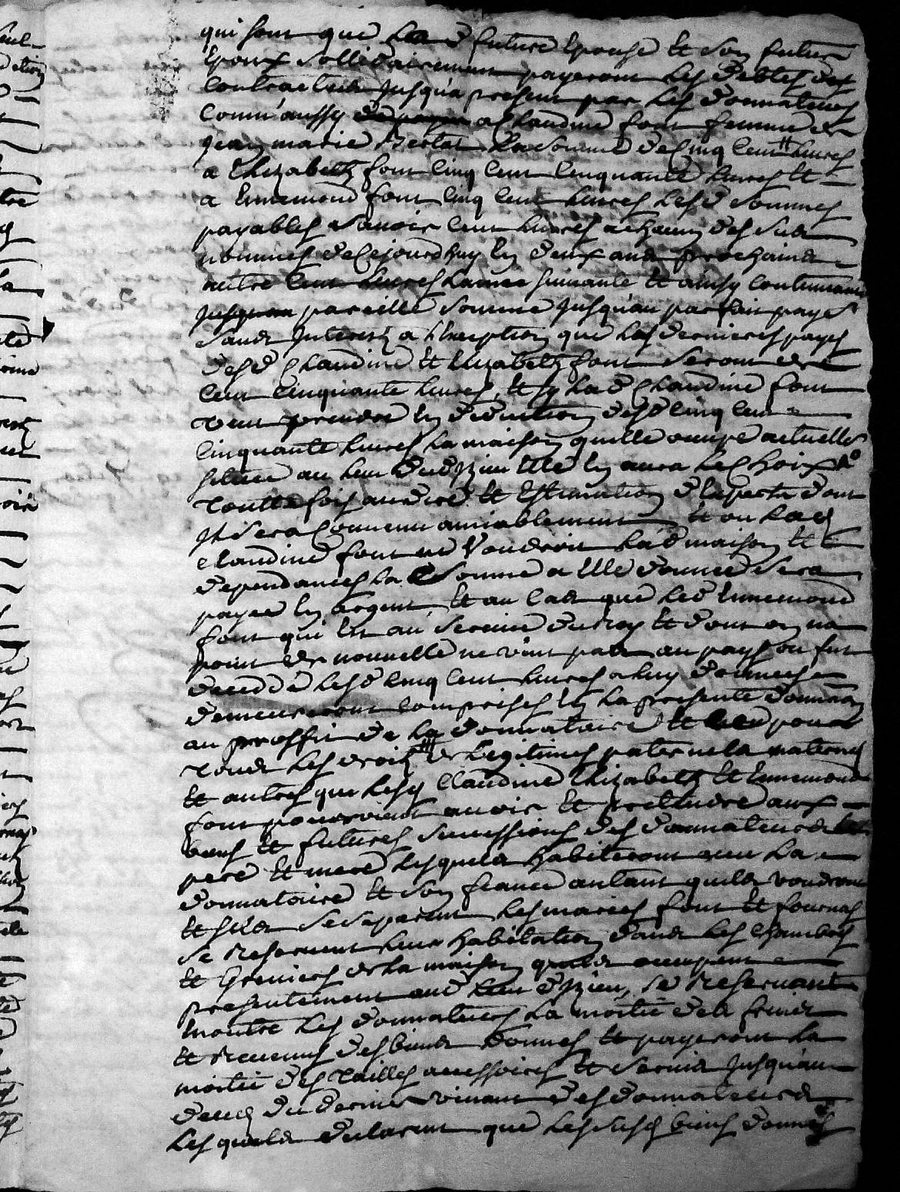 qui sont que la d future Epouse et son futur
Epoux sollidairement payeront les debtes
contractées jusqu'a present par les donnateurs
comm'aussy a Claudine font femme de
jean marie la somme de cinq cent livres
a Elizabeth font cinq cent cinquante livres et
a Ennemond font cinq cent livres les d sommes
payables scavoir cent livres a chacun des sus
nommés de cejourdhuy en deux ans prochains
autre cent livres l'année suivante et ainsy continuant
pareille somme jusqu'au parfait paye
sans interest a l'exception que les derniers payes
des d Claudine et Elizabeth font seront de
cent cinquante livres, et sy la d Claudine font
veut prendre en deduction des d cinq cent
cinquante livres la maison quelle occupe actuelle
située au lieu d'izieu elle en aura le choix
touttefois au dire et estimation d'experts dont
il sera convenu amiablement et ou lad
claudine font ne voudroit la d maison et
dependances la somme a elle donnée sera
payée en argent, et au cas que led Ennemond
font qui est au service du roy et dont on na
point de nouvelle ne vint pas au pays ou fut
decedde les d cinq cent livres a luy données
demeureront comprises en la presente donnaon
au proffit de la donnataire et pour
tous les droits de legitimes paternels maternels
et autres que lesd Claudine Elizabeth et Ennemond
font pourroient avoir et pretendre aux
biens et futures successions des donnateurs
pere et mere lesquels habiteront avec la
donnataire et son fiancé autant quils voudront
et s'ils se separent les mariés font et fournas
se reservent leur habitation dans les chambres
et greniers de la maison quils occupent
presentement aud lieu d'izieu, se reservant
en outre les donnateurs la moitié des fruits
et revenus des biens donnés et payeront la
moitié des tailles accessoires et servis jusqu'au
deces du dernier vivant des donnateurs
lesquels declarent que les susd biens donnés